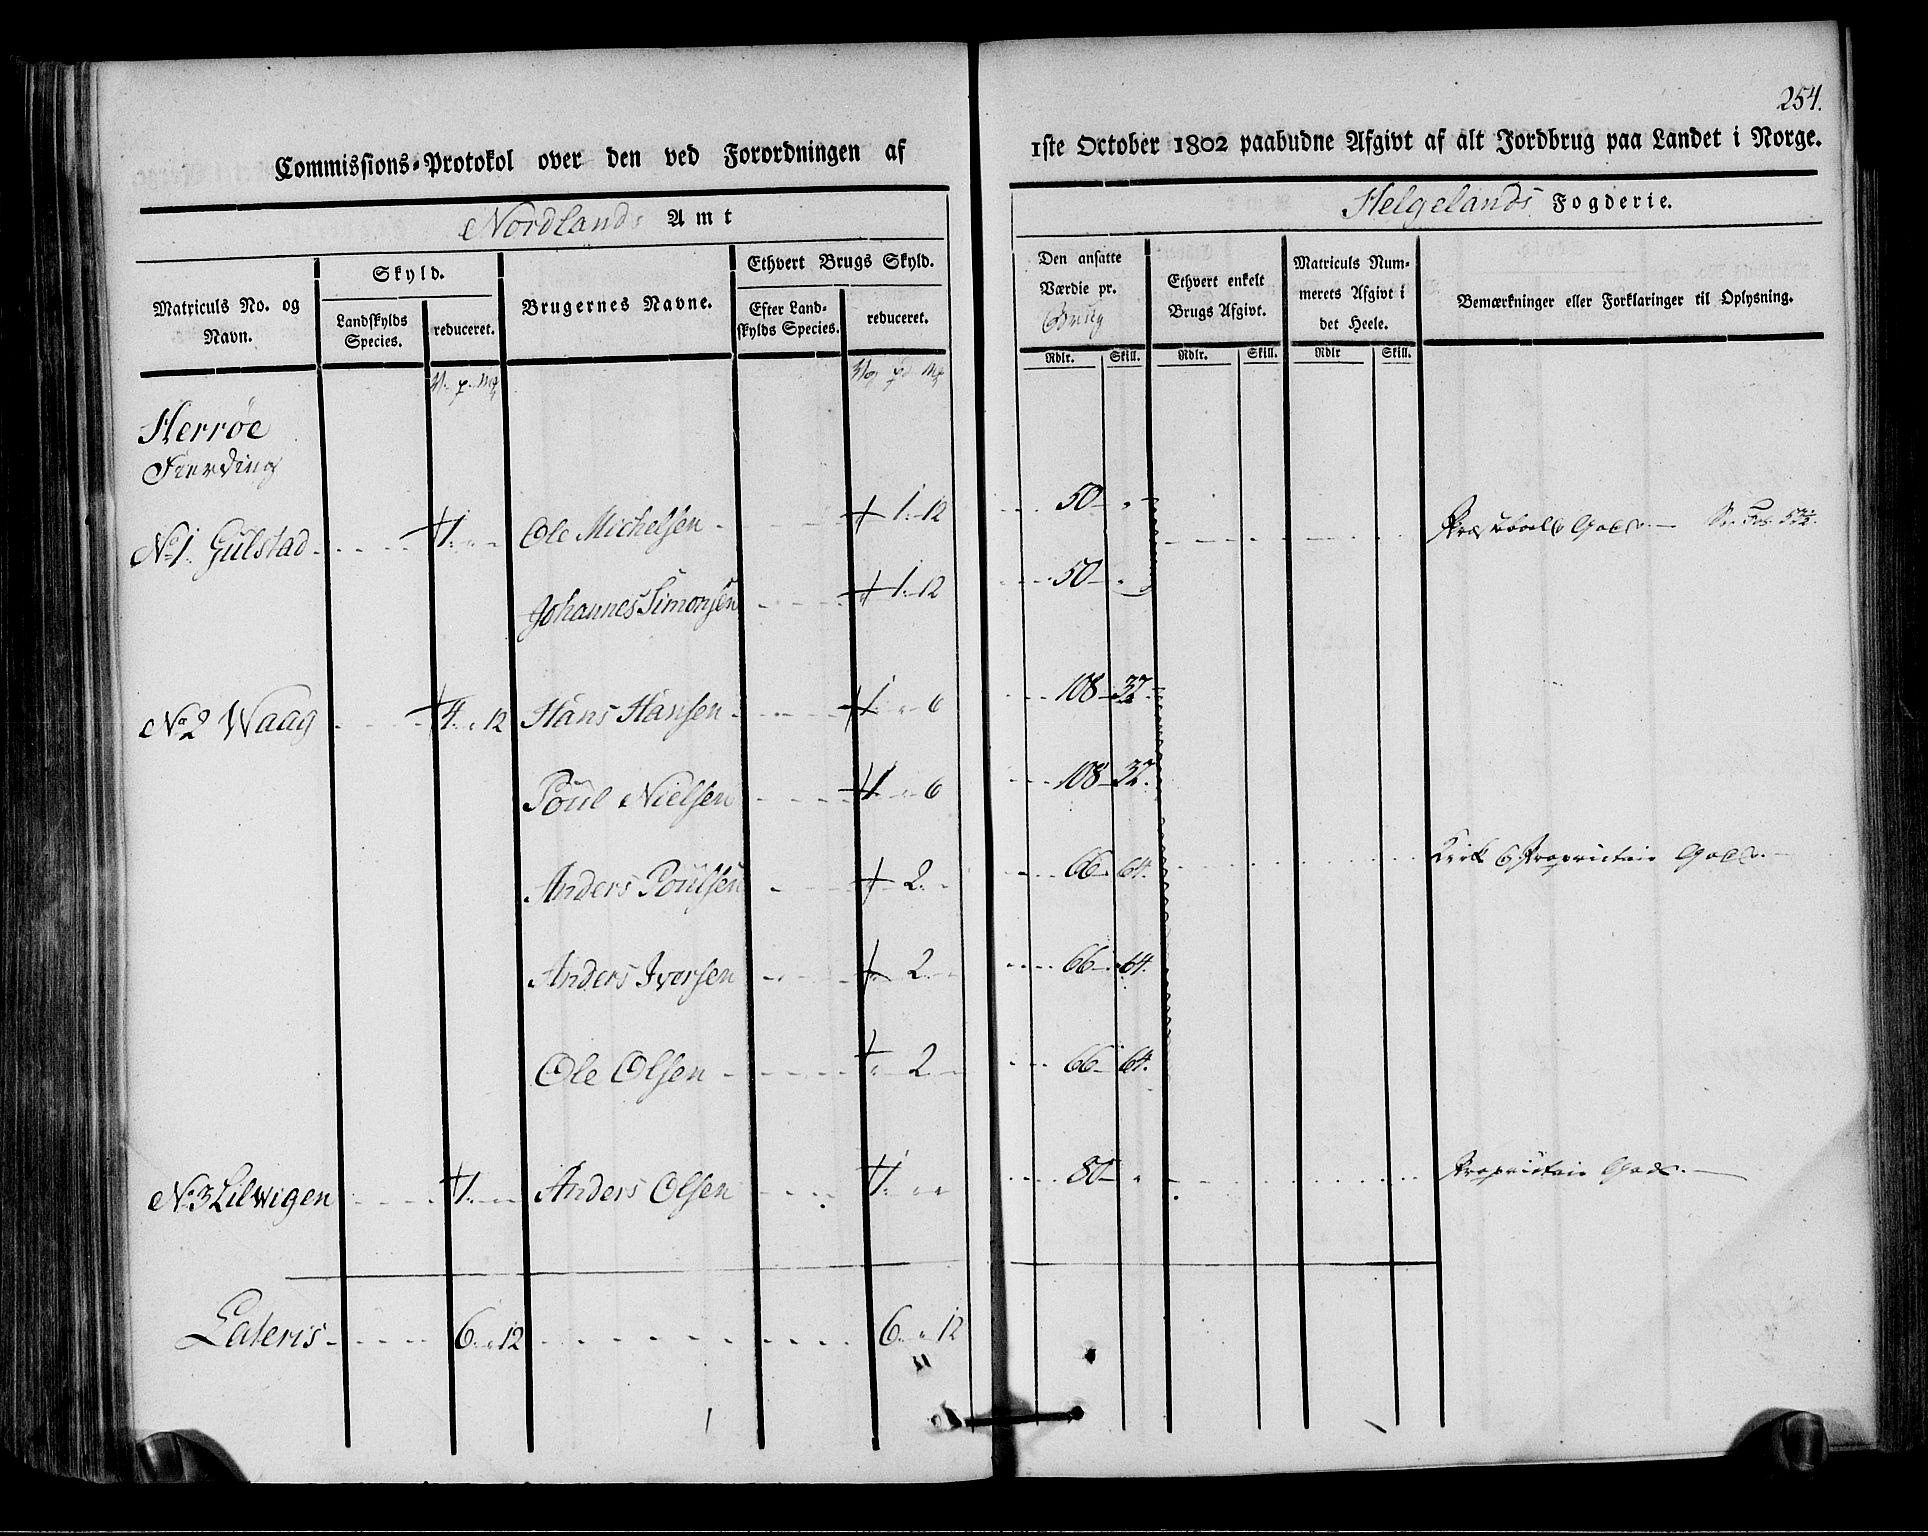 254.
Commissions-Protokol over den ved Forordningen af 1ste October 1802 paabudne Afgivt af alt Jordbrug paa Landet i Norge.
Nordlands Amt
Helgelands Fogderie.
Matriculs No. og Navn.
Skyld.
Landskylds Species.
reduceret.
Brugernes Navne.
Ethvert Brugs Skyld.
Efter Landskylds Species.
reduceret.
Den ansatte Værdie pr. Brug
Ethvert enkelt Brugs Afgivt.
Matriculs Nummerets Afgivt i det Heele.
Bemærkninger eller Forklaringer til Oplysning.
Rdlr. Skill. Rdlr. Skill. Rdlr Skill.
Herrøe
Fierding
No 1. Gulstad 1. Ole Michelsen 1. 12 50
Johannes Simonsen 1. 12 50
No 2 Waag 4. 12 Hans Hansen 1 6 108 32.
Poul Nielsen 1 6 108 32.
Anders Poulsen 2. 66 64. Proprietair Gods
Anders Iversen 2. 66 64.
Ole Olsen 2 66 64.
No 3 Lilwigen 1. Anders Olsen 1. 80 Proprietair Gods
Lateris 6. 12 6. 12